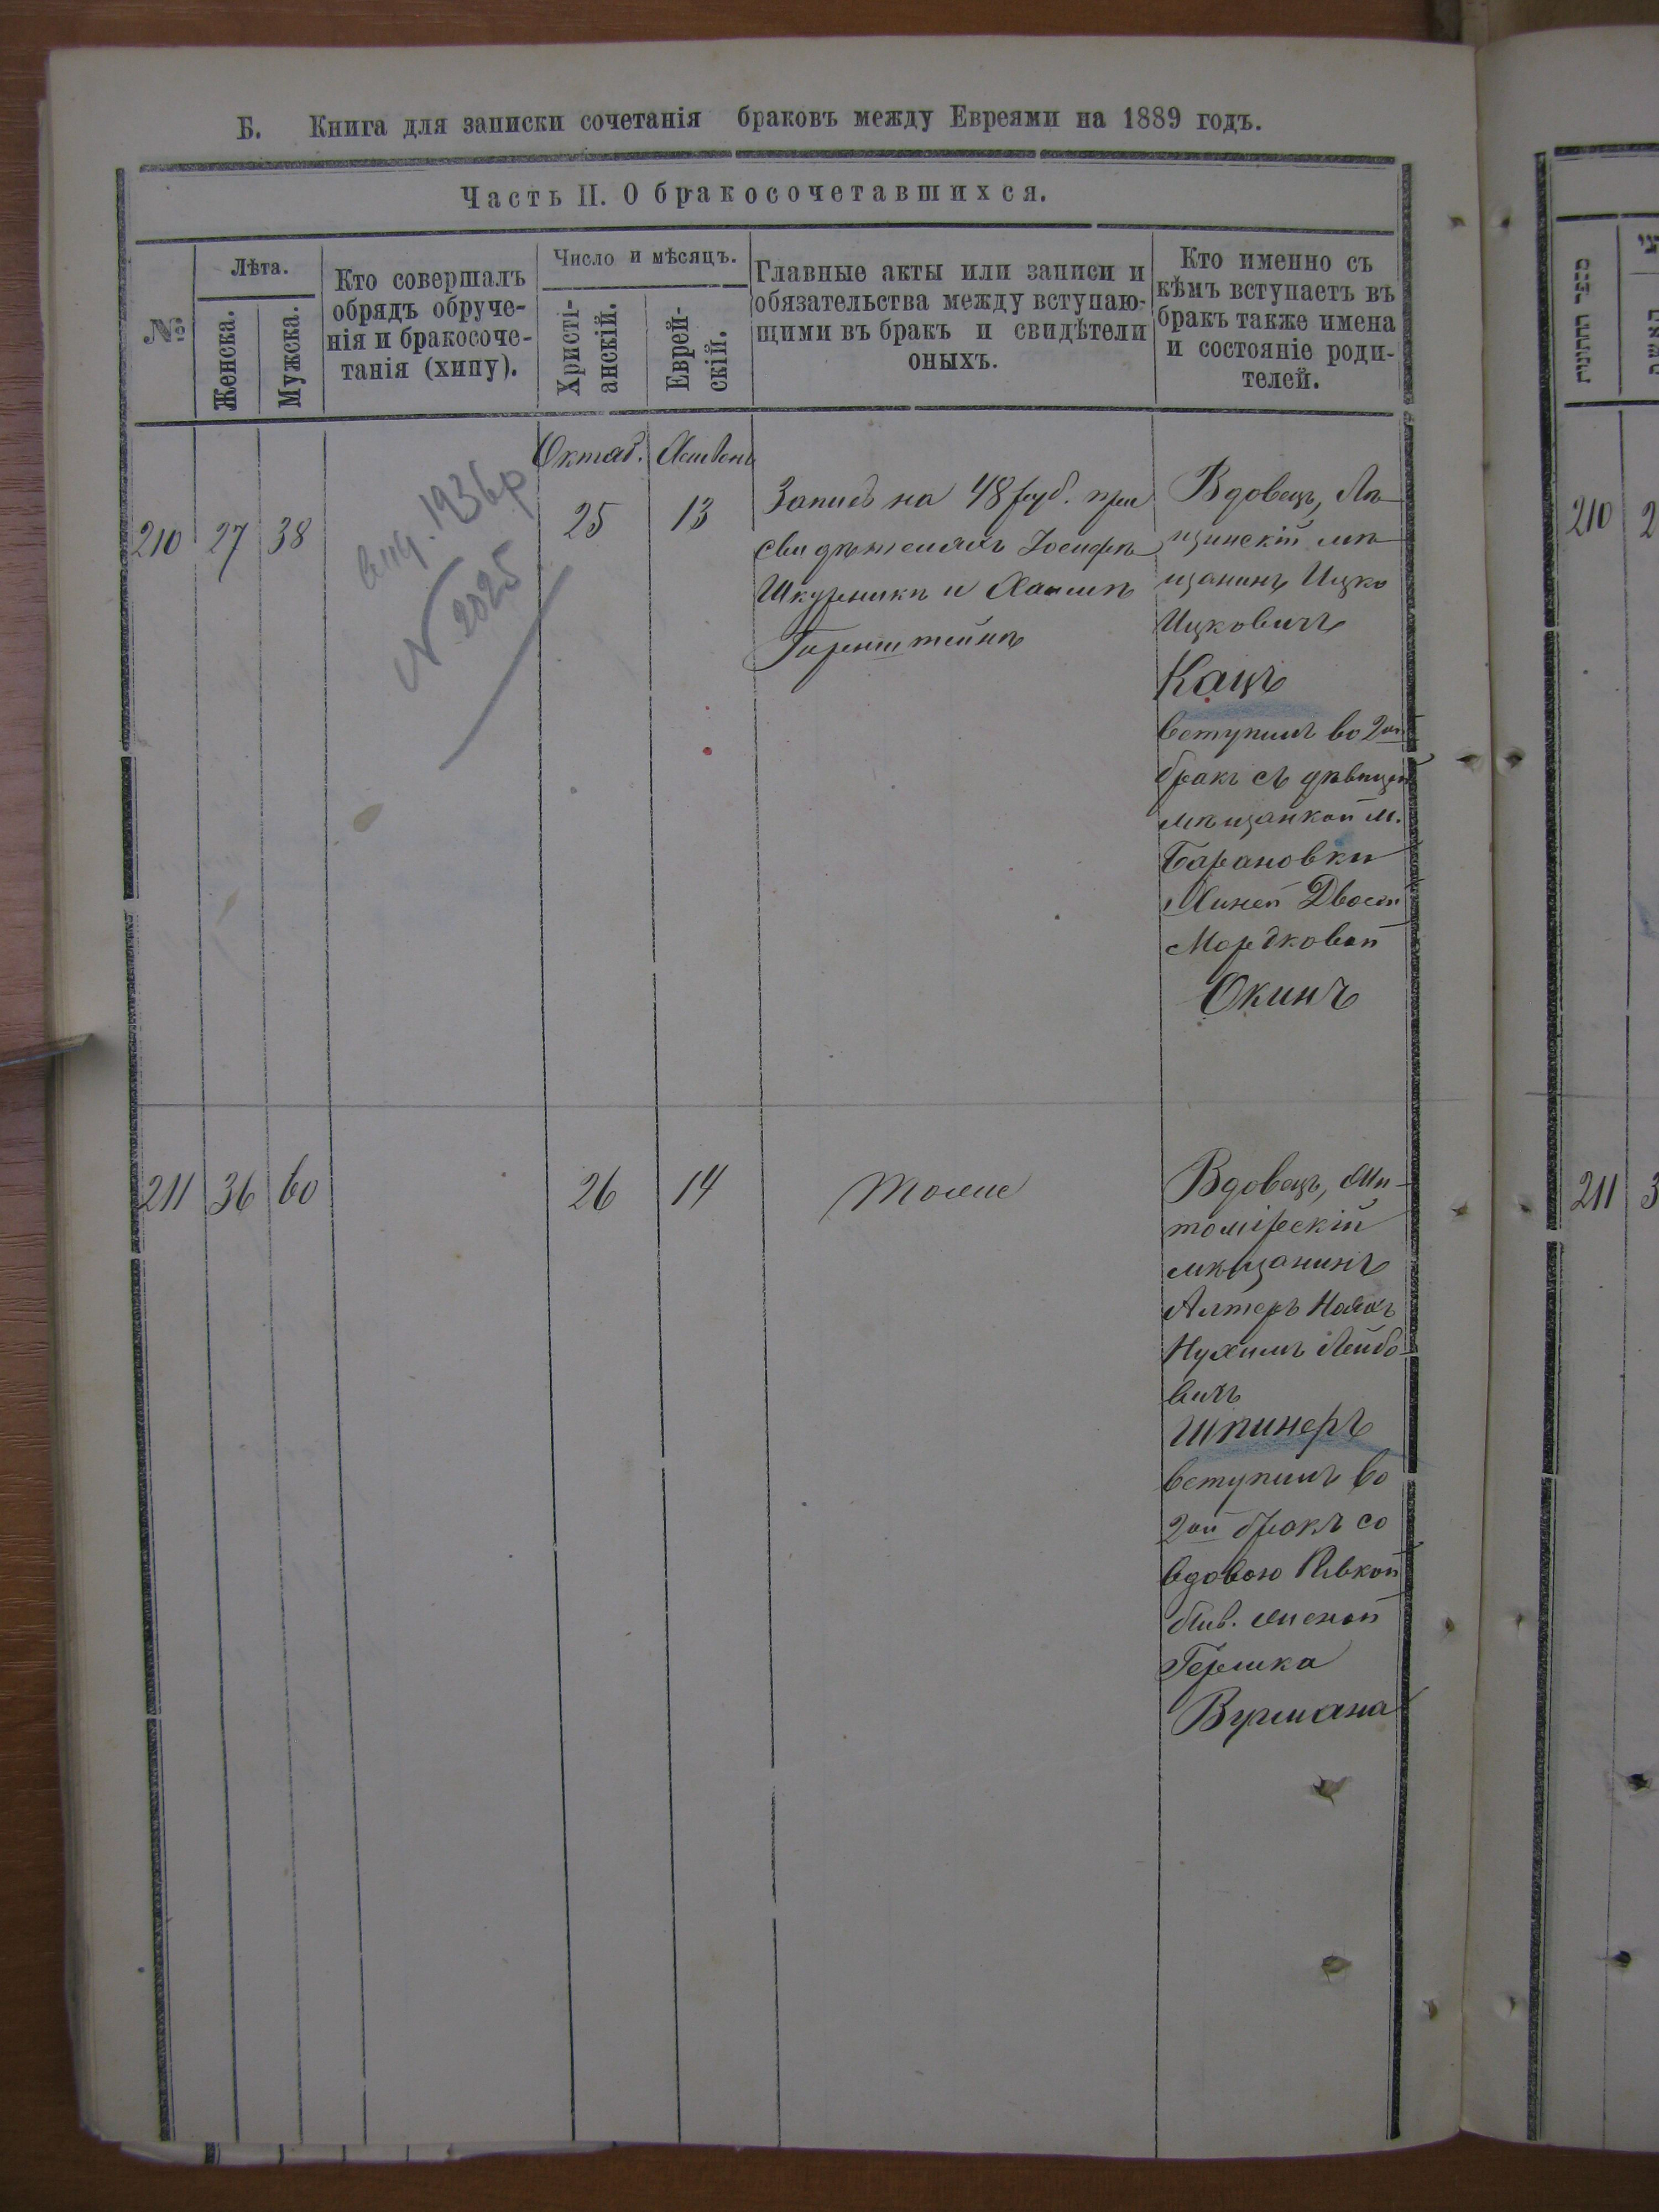 Б. Книга для записки сочетанія браковъ между Евреями на 1889 годъ.
Часть II. О бракосочетавшихся.
№
Лѣта.
Женска.
Мужска.
Кто совершалъ
обрядъ обруче-
нія и бракосоче-
танія (хипу).
Число и мѣсяцъ.
Христі-
анскій.
Еврей-
скій.
Главные акты или записи и
обязательства между вступаю-
щими въ бракъ и свидѣтели
оныхъ.
Кто именно съ
кѣмъ вступаетъ въ
бракъ также имена
и состояніе роди-
телей.
מספר החתונות
Октяб. Хешвень
210 27 38
1936р
N 2025
25 13
Запись на 48 руб. при
свидѣтеляхъ Іосифѣ
Шкурникѣ и Хаимѣ
Горенштейнѣ
Вдовецъ,
мѣ-
щанинъ Ицко
Ицковичъ
Кацъ
вступилъ во 2ой
бракъ съ дѣвицей
мѣщанкой м.
Барановки
Двосей
Мордковой
Окинъ
211 36 60
26 14
Тоже
Вдовецъ, Жи-
томірскій
мѣщанинъ
Алтеръ Ноахъ
Нухимъ Лейбо-
вичъ
Шпинеръ
вступилъ во
2ой бракъ со
вдовою Ривкой
быв. женой
Гершка
Вурмана
210 2
211 3